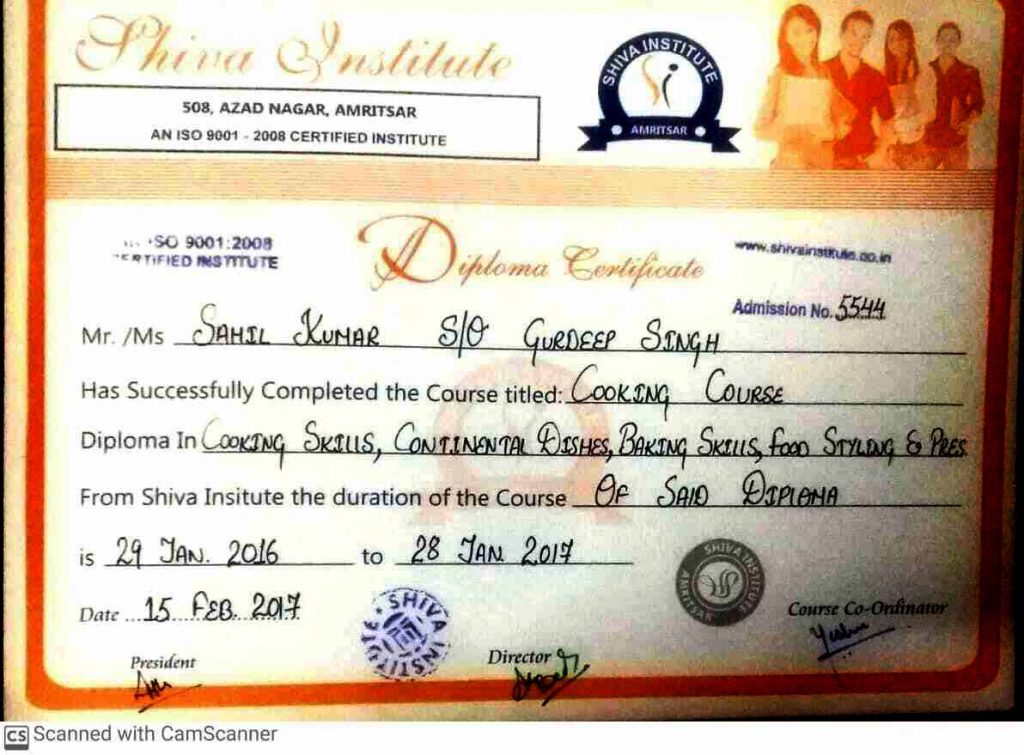 Shiva Institute
508, AZAD NAGAR, AMRITSAR
AN ISO 9001 - 2008 CERTIFIED INSTITUTE
SHIVA INSTITUTE
Si
AMRITSAR
ISO 9001:2008
CERTIFIED INSTITUTE
Diploma Certificate
www.shivainstitute.co.in
Admission No. 5544
Mr. /Ms SAHIL KUMAR S/O GURDEEP SINGH
Has Successfully Completed the Course titled: COOKING COURSE
Diploma In COOKING SKILLS, CONTINENTAL DISHES, BAKING SKILLS, FOOD STYLING & PRES.
From Shiva Insitute the duration of the Course OF SAID DIPLOMA
is 29 JAN. 2016 to 28 JAN. 2017
Date 15 FEB. 2017
SHIVA INSTITUTE
SHIVA INSTITUTE
AMRITSAR
Course Co-Ordinator
President
Director
CS Scanned with CamScanner